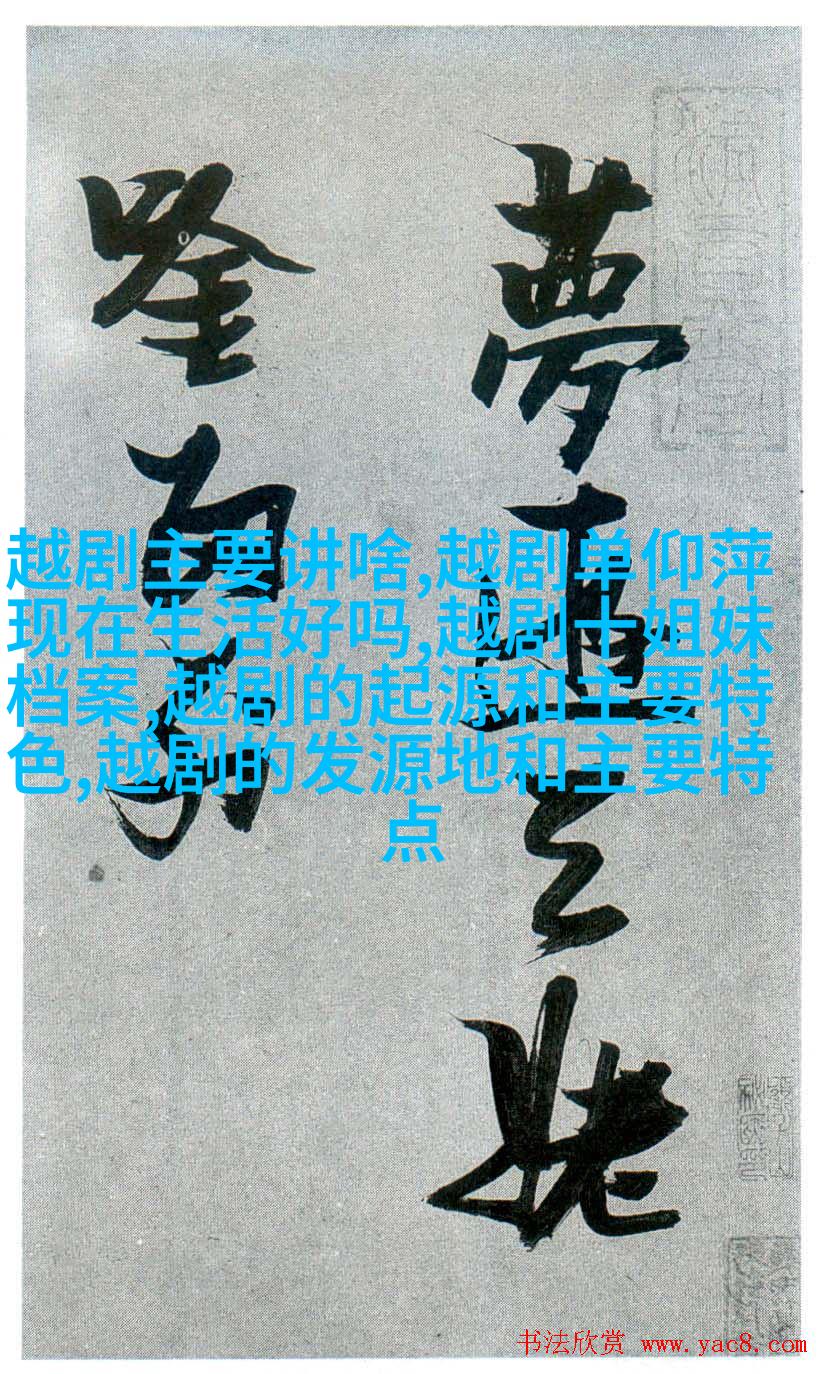 夢遊天姥
唫留别
越剧主要讲啥,越剧单仰萍
现在生活好吗,越剧十姐妹
档案,越剧的起源和主要特
色,越剧的发源地和主要特
点
书法欣赏 www.yac8.com